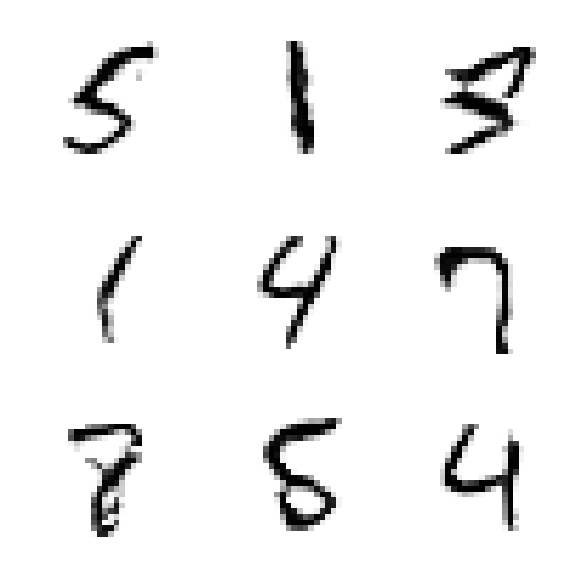 5 1 3
1 4 7
8 8 4